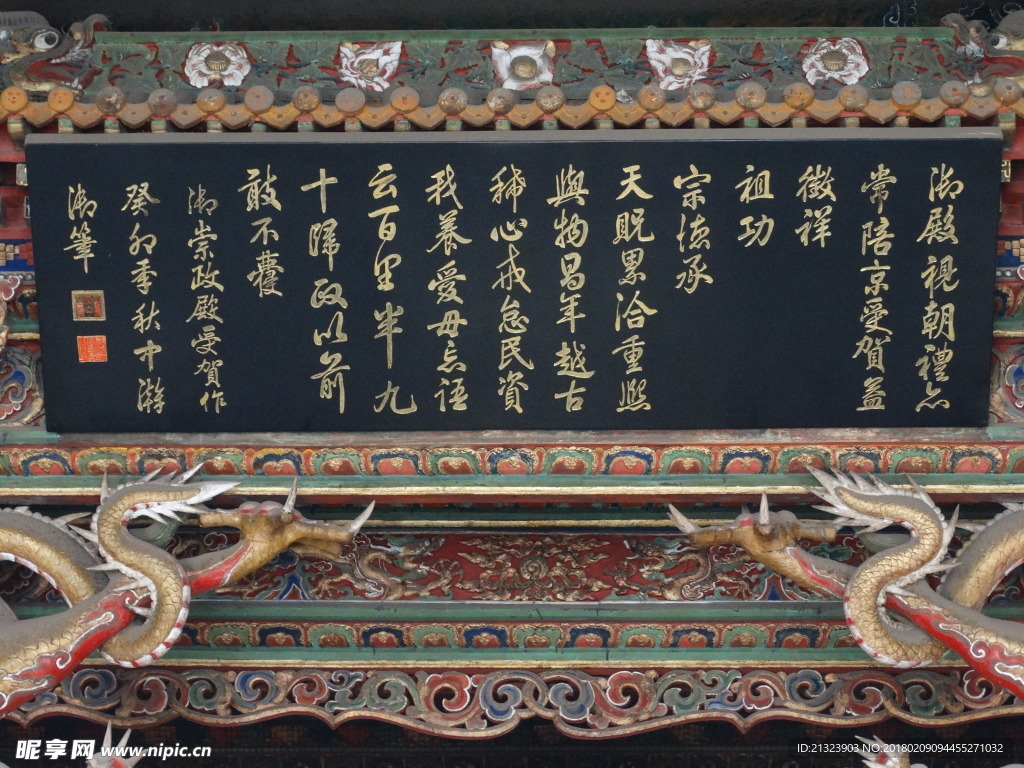 御殿視朝禮亦
常陪京受賀益
徵祥
祖功
宗德承
天貺累洽重熙
與物昌年越古
稀心戒怠民資
我養愛毋忘語
云百里半九
十歸政以前
敢不蘉
御崇政殿受賀作
癸卯季秋中澣
御筆
昵享网 www.nipic.cn
ID:21323903 NO:20180209094455271032